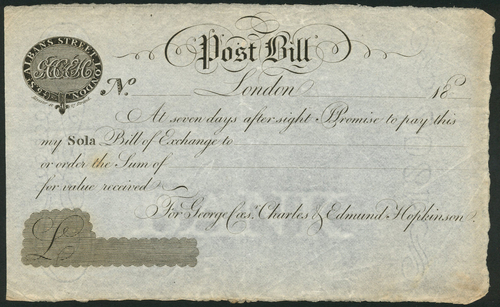 ST. ALBANS STREET, LONDON.
Post Bill
No.
London 18
At seven days after sight I Promise to pay this
my Sola Bill of Exchange to
or order the Sum of
for value received
For George Cas. Charles & Edmund Hopkinson
£